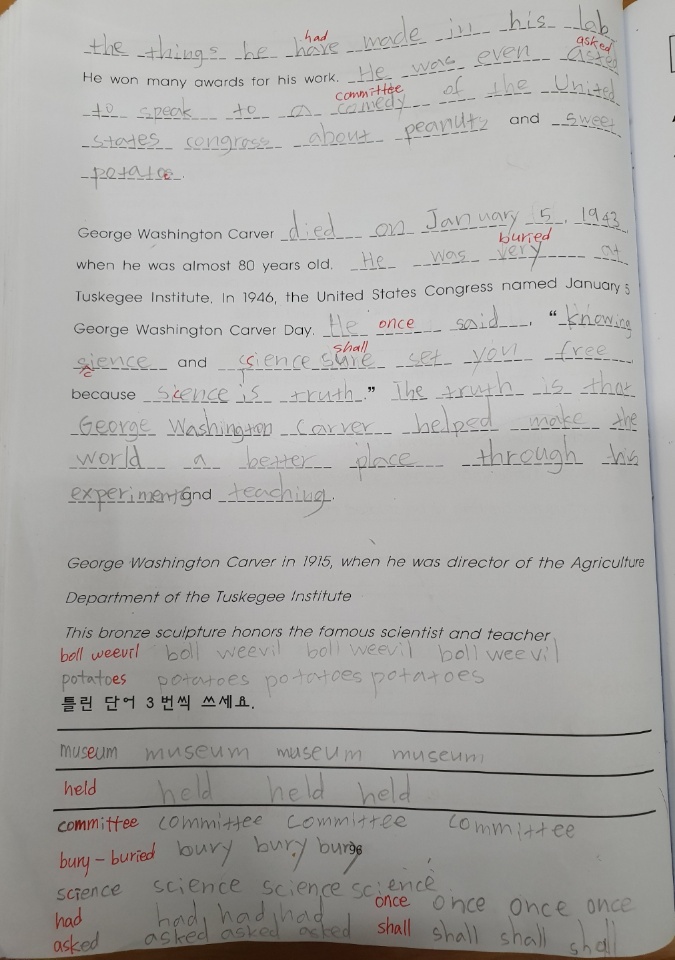 had
the things he have made in his lab
asked
He won many awards for his work. He was even asted
committee
to speak to a comedy of the United
states congress about peanuts and sweet
potatoe.
George Washington Carver died on January 5, 1943
buried
when he was almost 80 years old. He was very at
Tuskegee Institute. In 1946, the United States Congress named January 5
George Washington Carver Day. He once said, "knowing
shall
science and science sure set you free
because science is truth." The truth is that
George Washington Carver helped make the
world a better place through his
experiments and teaching.
George Washington Carver in 1915, when he was director of the Agriculture
Department of the Tuskegee Institute
This bronze sculpture honors the famous scientist and teacher
boll weevil boll weevil boll weevil boll weevil
potatoes potatoes potatoes potatoes
틀린 단어 3 번씩 쓰세요.
museum museum museum museum
held held held held
committee committee committee committee
bury - buried bury bury bury
science science science science
had had, had, had once once once once
asked asked asked asked shall shall shall shall